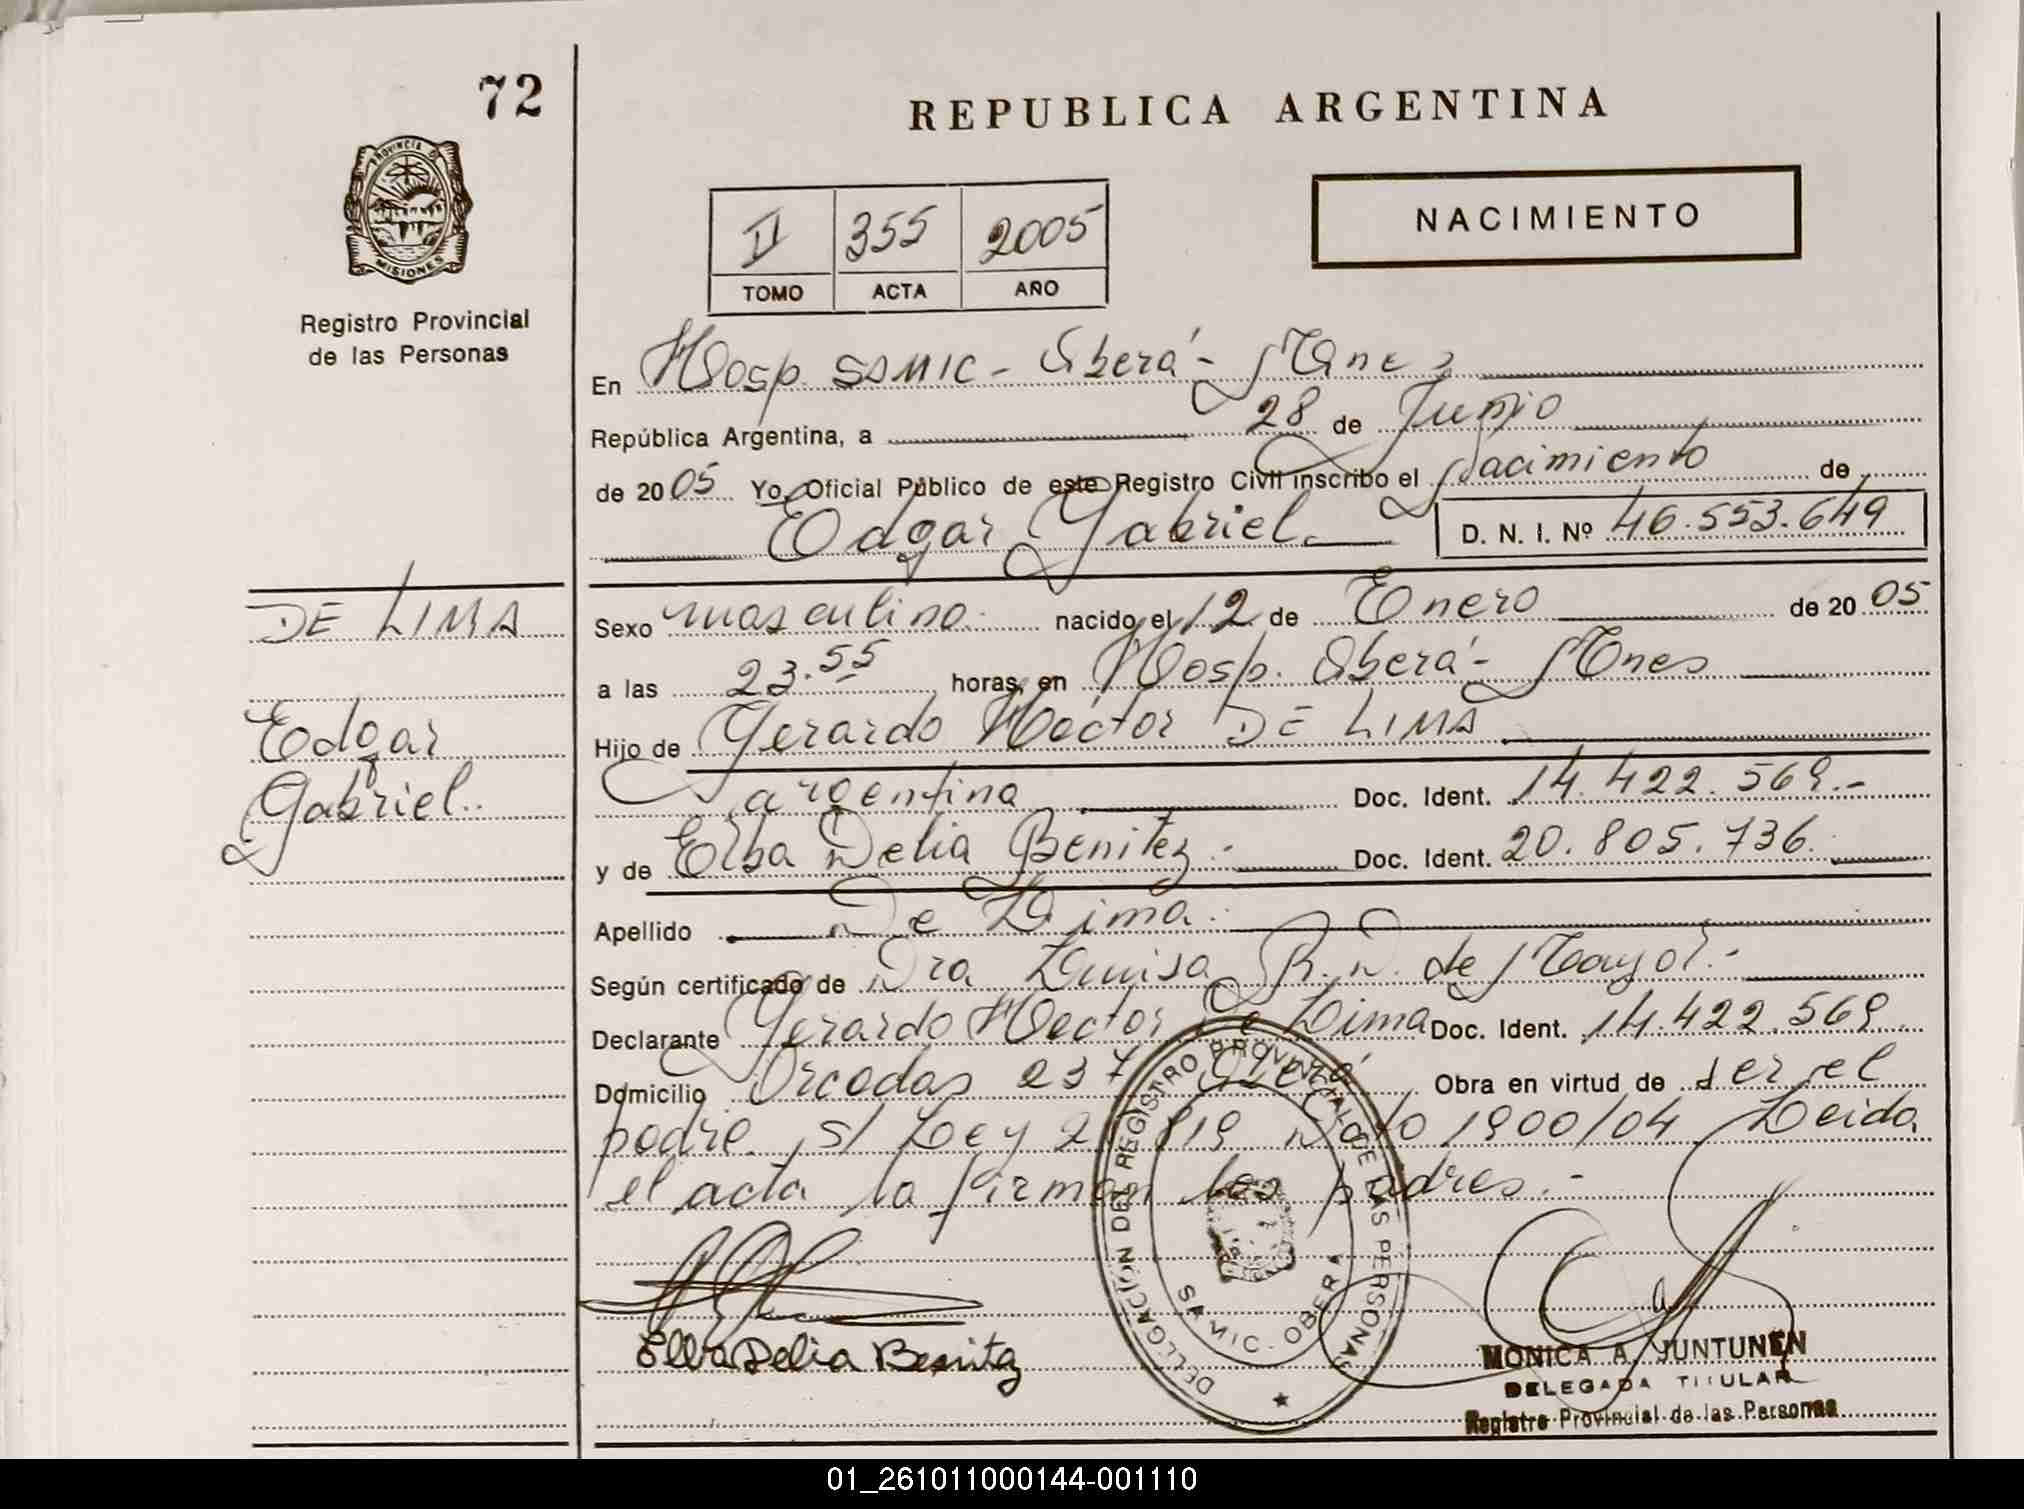 72
REPUBLICA ARGENTINA
PROVINCIA DE
MISIONES
Registro Provincial
de las Personas
NACIMIENTO
II 355 2005
TOMO ACTA AÑO
En Hosp. SAMIC - Oberá - Mnes
República Argentina, a 28 de Junio
de 2005 Yo, Oficial Público de este Registro Civil inscribo el Nacimiento de
Edgar Gabriel. D. N. I. Nº 46.553.649
DE LIMA
Edgar
Gabriel..
Sexo masculino. nacido el 12 de Enero de 2005
a las 23.55 horas, en Hosp. Oberá - Mnes
Hijo de Gerardo Hector DE LIMA
argentina Doc. Ident. 14.422.569.-
y de Elba Delia Benitez.- Doc. Ident. 20.805.736.
Apellido De Lima.
Según certificado de Dra Luisa R. N. de Mayol.-
Declarante Gerardo Hector De Lima Doc. Ident. 14.422.569.
Domicilio Orcadas 237 Oberá Obra en virtud de ser el
padre, s/ Ley 25.819 Dcto 1900/04 Leida
el acta la firman los padres.-
Elba Delia Benitez
DELEGACION DEL REGISTRO PROVINCIAL DE LAS PERSONAS
SAMIC - OBERA
MONICA A. JUNTUNEN
DELEGADA TITULAR
Registro Provincial de las Personas
01_261011000144-001110